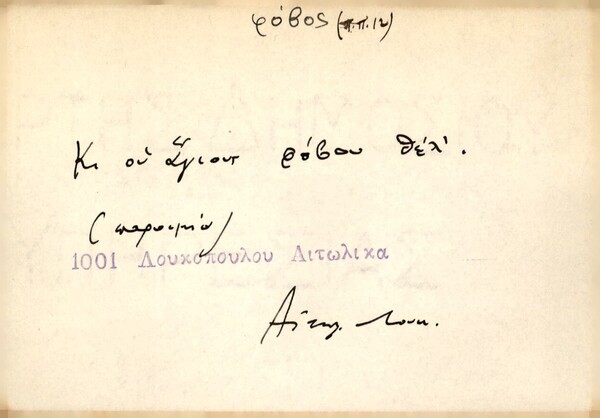 φόβος
Κι οὑ Ἅγιους φόβου θέλ'.
(παροιμία)
1001 Λουκοπουλου Αιτωλικα
Αἰτωλ. Λουκ.